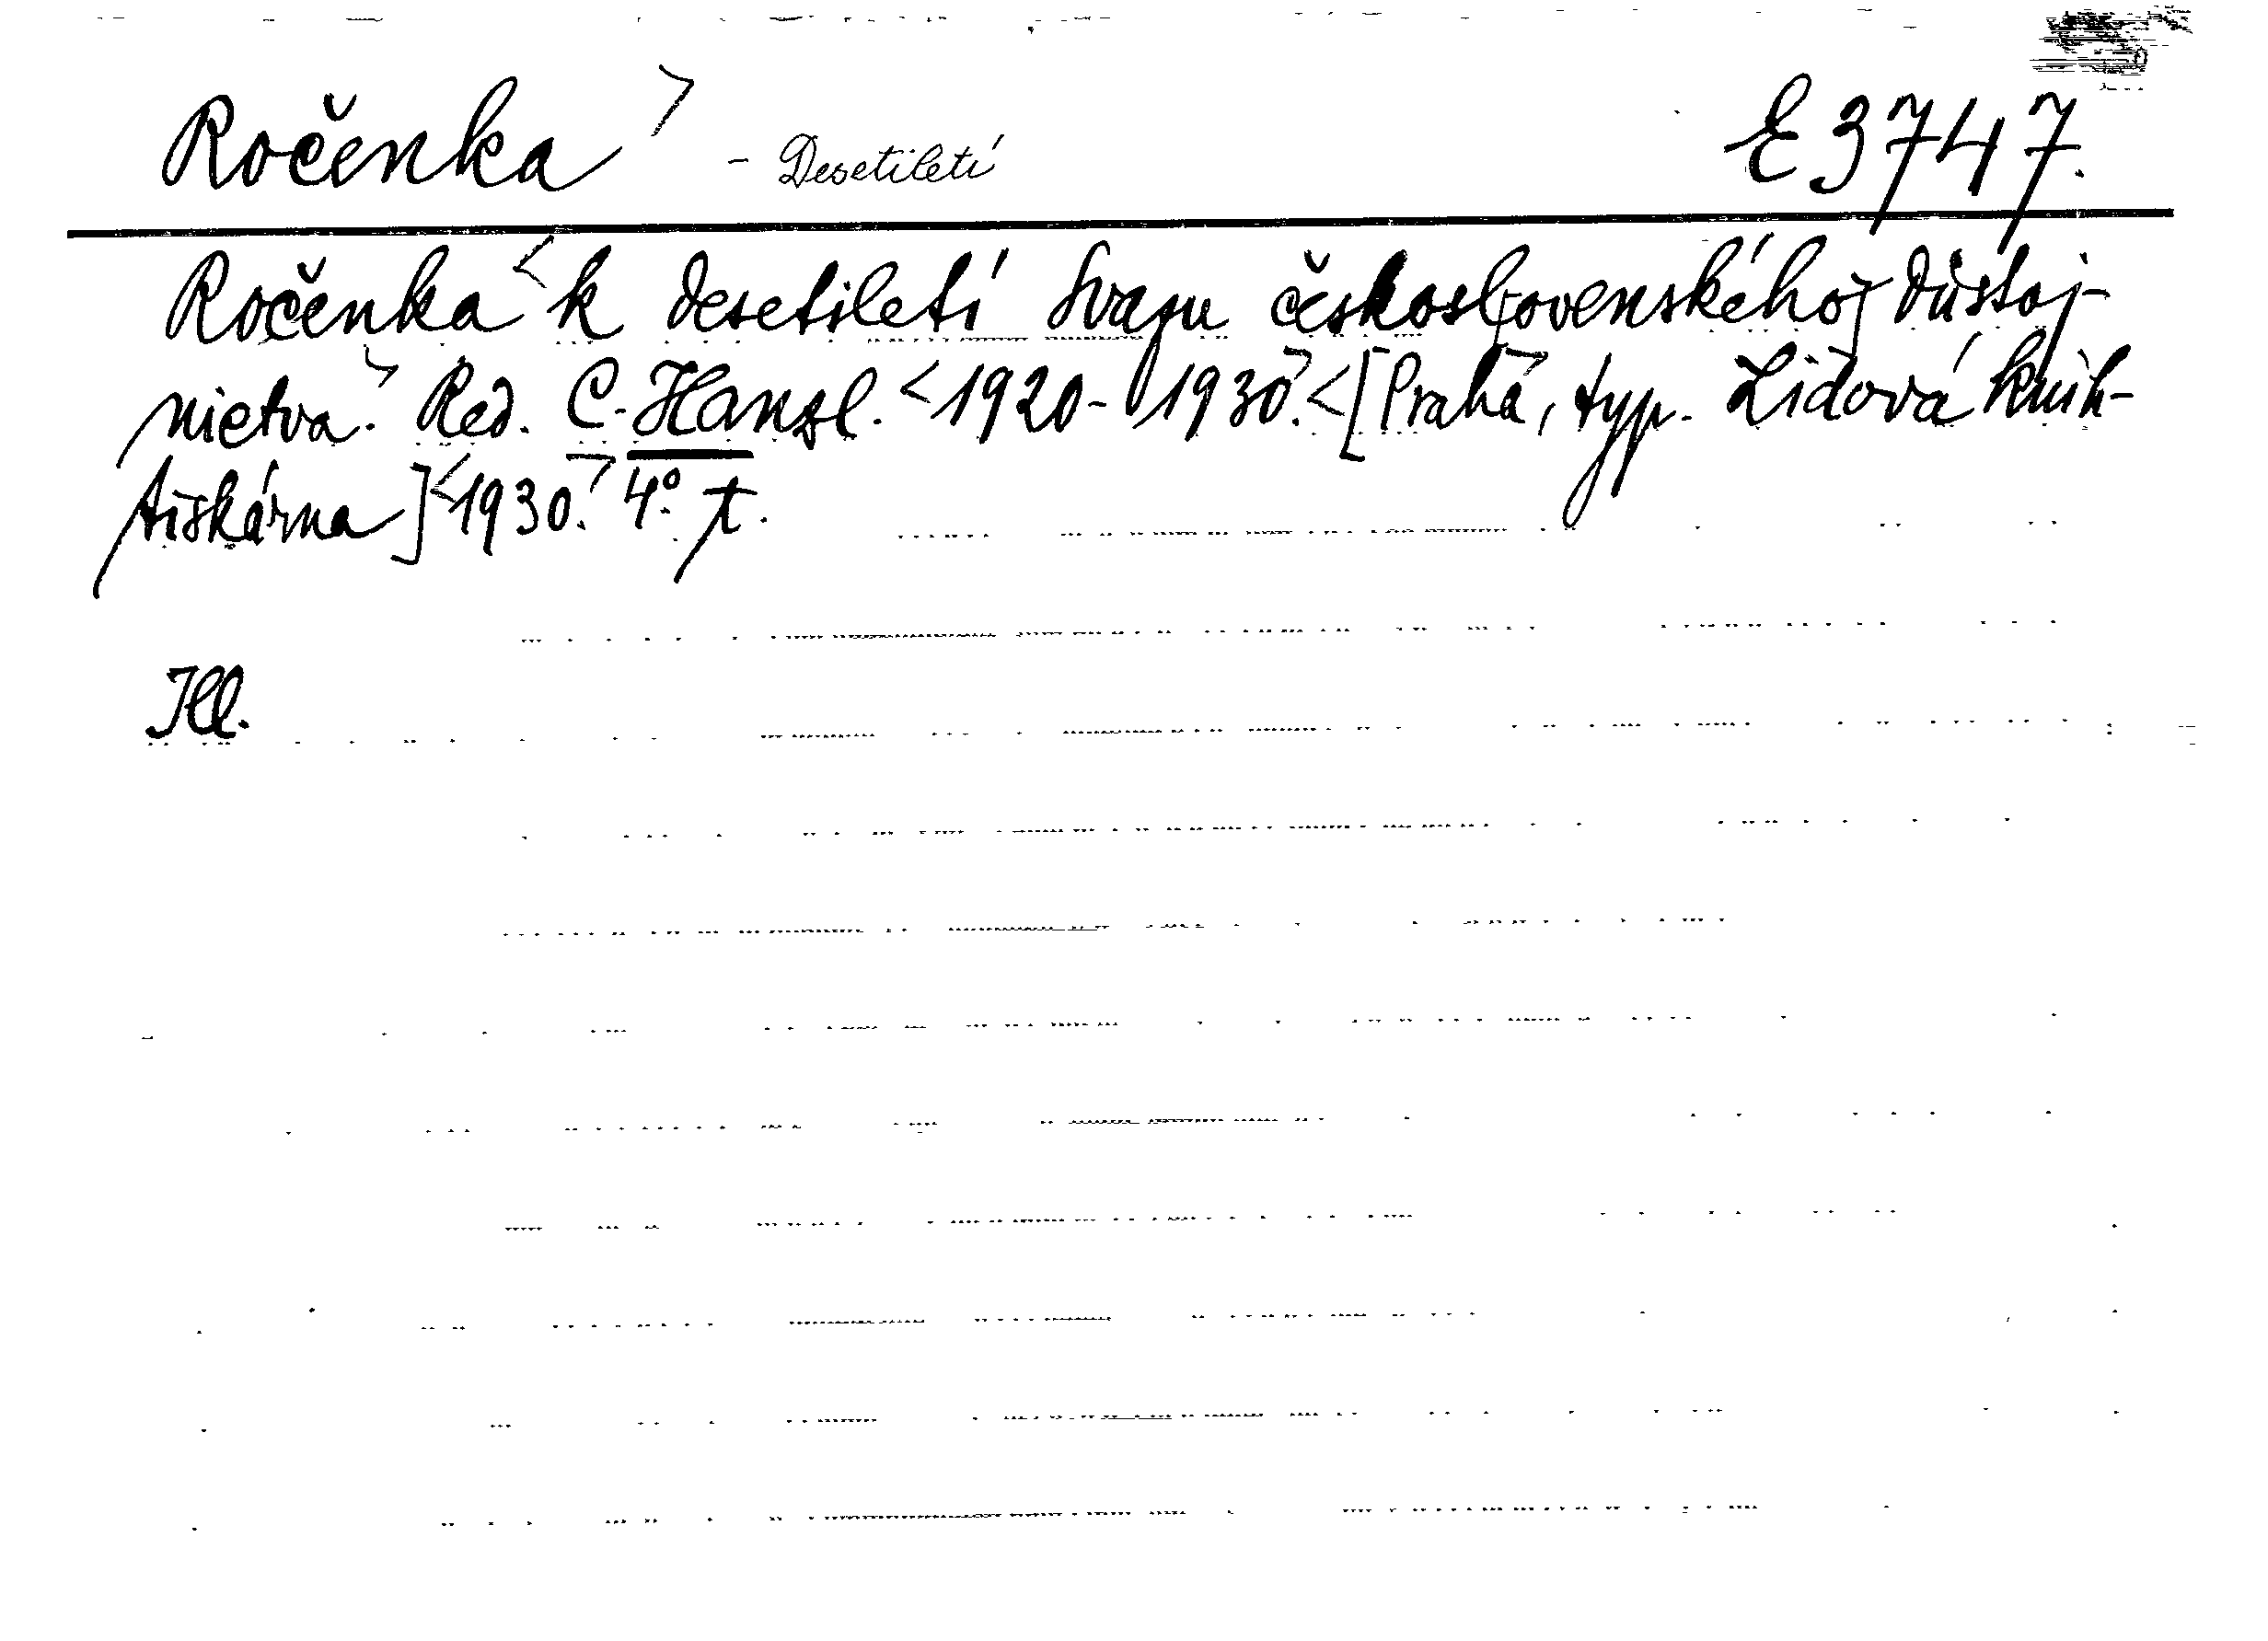 Ročenka - Desetiletí E 3747.
Ročenka k desetiletí Svazu československého důstoj-
nictva. Red. C. Hanzl. 1920-1930. [Praha, typ. Lidová knih-
tiskárna] 1930. 4°. t.
Ill.